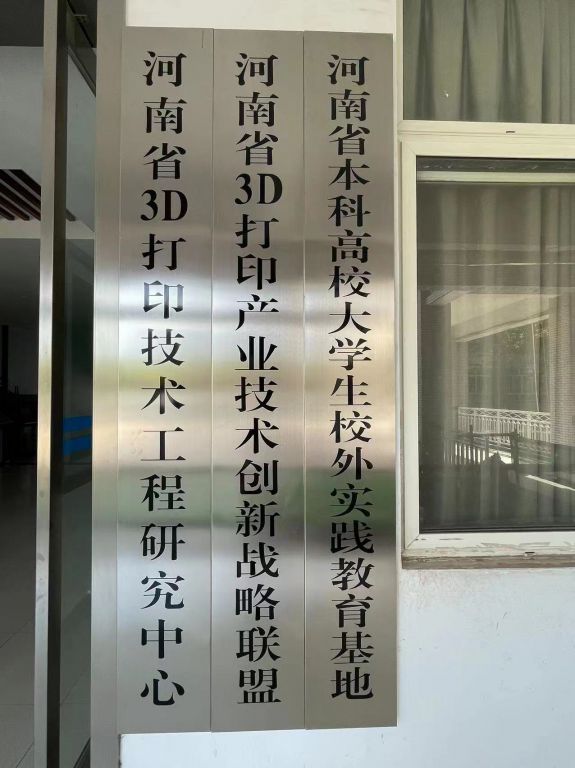 河南省3D打印技术工程研究中心
河南省3D打印产业技术创新战略联盟
河南省本科高校大学生校外实践教育基地